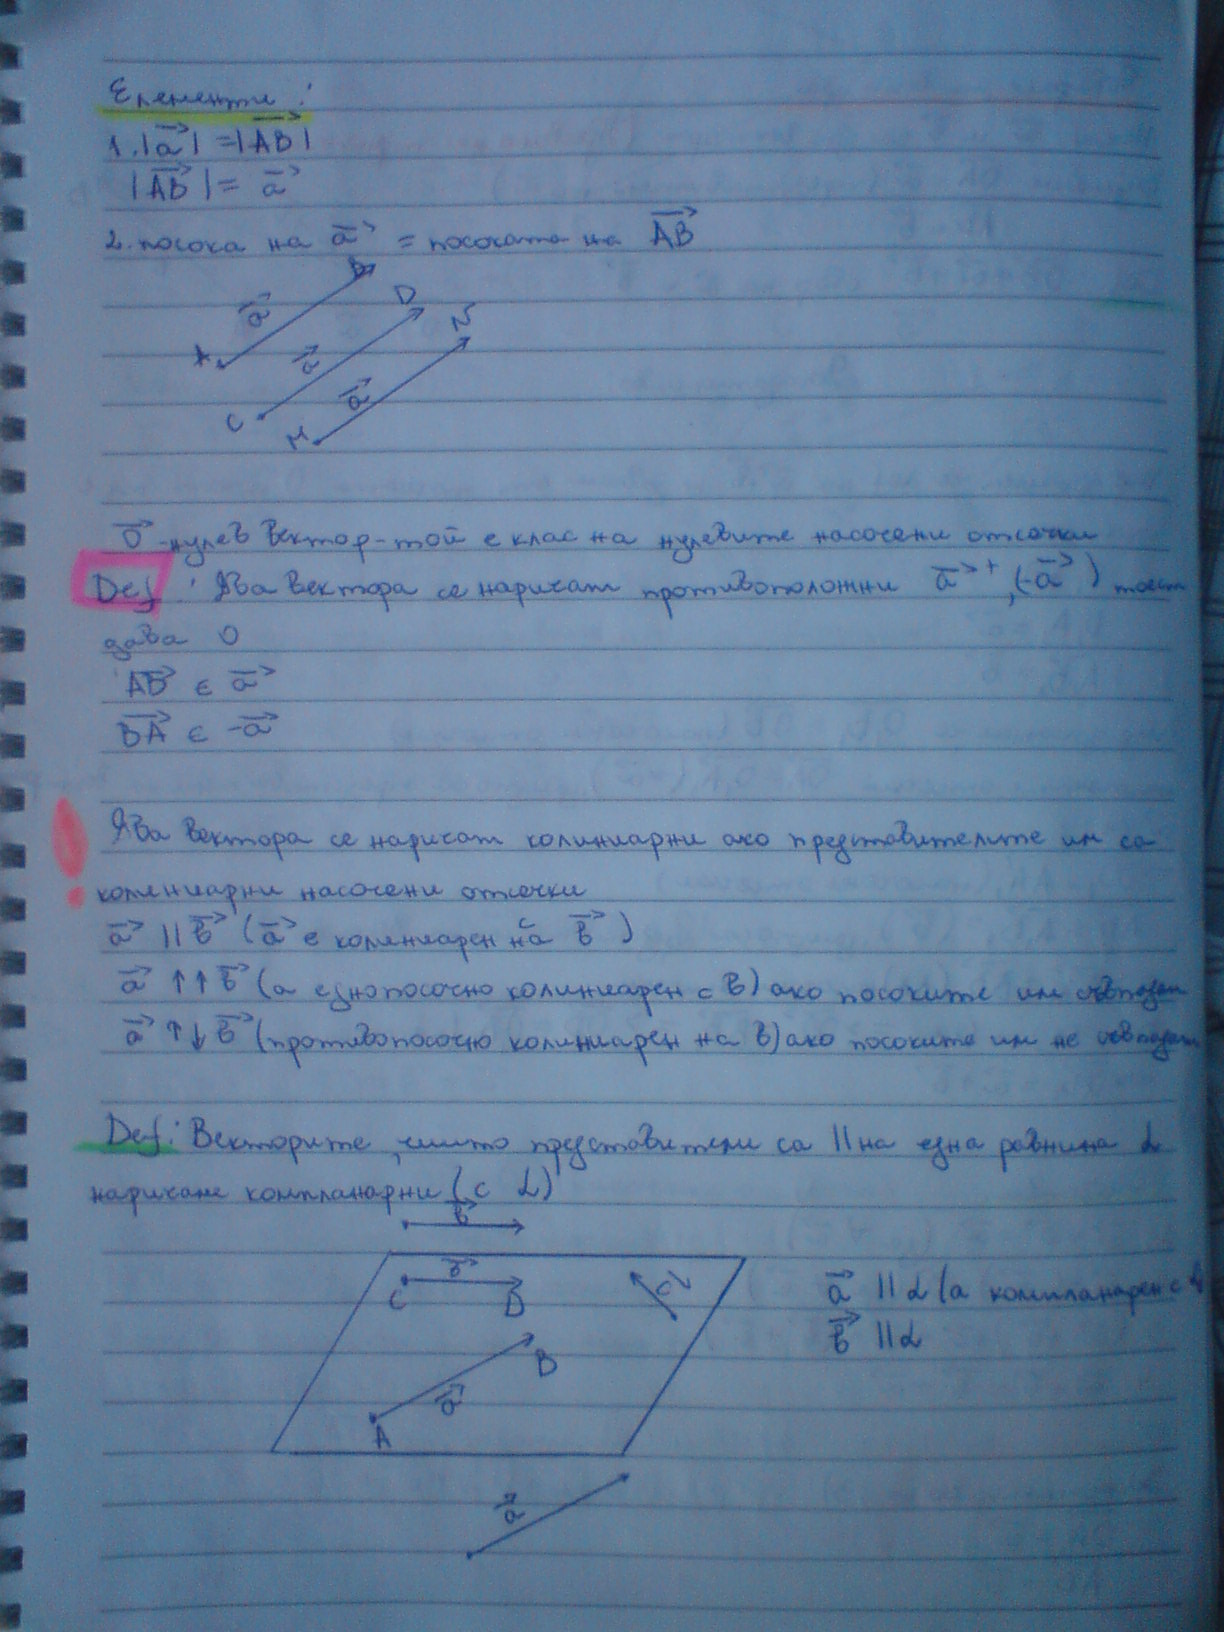 Елементи:
1. |a⃗| = |AB⃗|
|AB⃗| = a⃗
2. посока на a⃗ = посоката на AB⃗
B
a⃗
D
N
A
a⃗
a⃗
C
M
0⃗ - нулев вектор - той е клас на нулевите насочени отсечки
Def: Два вектора се наричат противоположни a⃗ + (-a⃗)
дава 0
AB⃗ ∈ a⃗
BA⃗ ∈ -a⃗
Два вектора се наричат колиниарни ако представителите им са
колиниарни насочени отсечки
a⃗ || b⃗ (a⃗ е колиниарен на с b⃗)
a⃗ ↑↑ b⃗ (a еднопосочно колиниарен с b) ако посоките им съвпадат
a⃗ ↑↓ b⃗ (противопосочно колиниарен на b) ако посоките им не съвпадат
Def: Векторите, чиито представители са || на една равнина α
наричаме компланарни (с α)
b⃗
b⃗
c⃗
C D
a⃗ || α (a компланарен с α
b⃗ || α
B
a⃗
A
a⃗